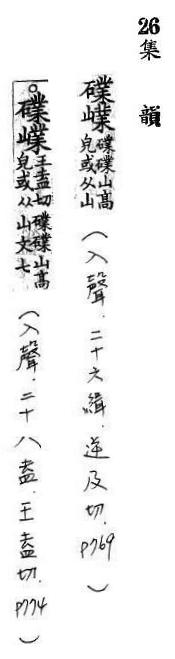 26集　韻
礏嶫礏礏山高皃或从山（入聲．二十六緝．逆及切．P769）
○礏嶫王盍切礏礏山高皃或从山文七（入聲．二十八盍．王盍切．P774）